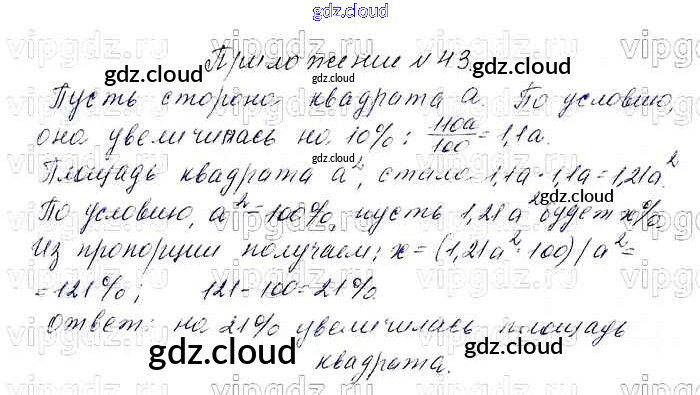 gdz.cloud
Приложение №43.
Пусть сторона квадрата a. По условию,
она увеличилась на 10%: 110a/100 = 1,1a.
Площадь квадрата a², стало 1,1a·1,1a=1,21a².
По условию, a²=100%, пусть 1,21a² будет x%
Из пропорции получаем: x=(1,21a²·100)/a²=
=121%; 121-100=21%.
Ответ: на 21% увеличилась площадь
квадрата.
gdz.cloud